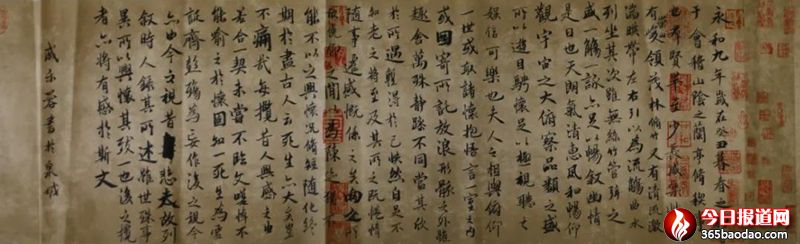 永和九年歲在癸丑暮春之
于會稽山陰之蘭亭脩稧
也羣賢畢至少長咸集此
有崇領茂林脩竹又有清流激
湍暎帶左右引以為流觴曲水
列坐其次雖無絲竹管弦之
盛一觴一詠亦足以暢叙幽情
是日也天朗氣清惠風和暢仰
觀宇宙之大俯察品類之盛
所以遊目騁懷足以極視聽之
娛信可樂也夫人之相與俯仰
一世或取諸懷抱悟言一室之內
或因寄所託放浪形骸之外雖
趣舍萬殊靜躁不同當其欣
於所遇輒得於己怏然自足不
知老之將至及其所之既惓情
隨事遷感慨係之矣向之所
俛仰之間以為陳迹猶不
能不以之興懷況脩短隨化終
期於盡古人云死生亦大矣豈
不痛哉每攬昔人興感之由
若合一契未嘗不臨文嗟悼不
能喻之於懷固知一死生為虛
誕齊彭殤為妄作後之視今
亦由今之視昔悲夫故列
叙時人錄其所述雖世殊事
異所以興懷其致一也後之攬
者亦將有感於斯文
書於泉城
今日报道网
365baodao.com